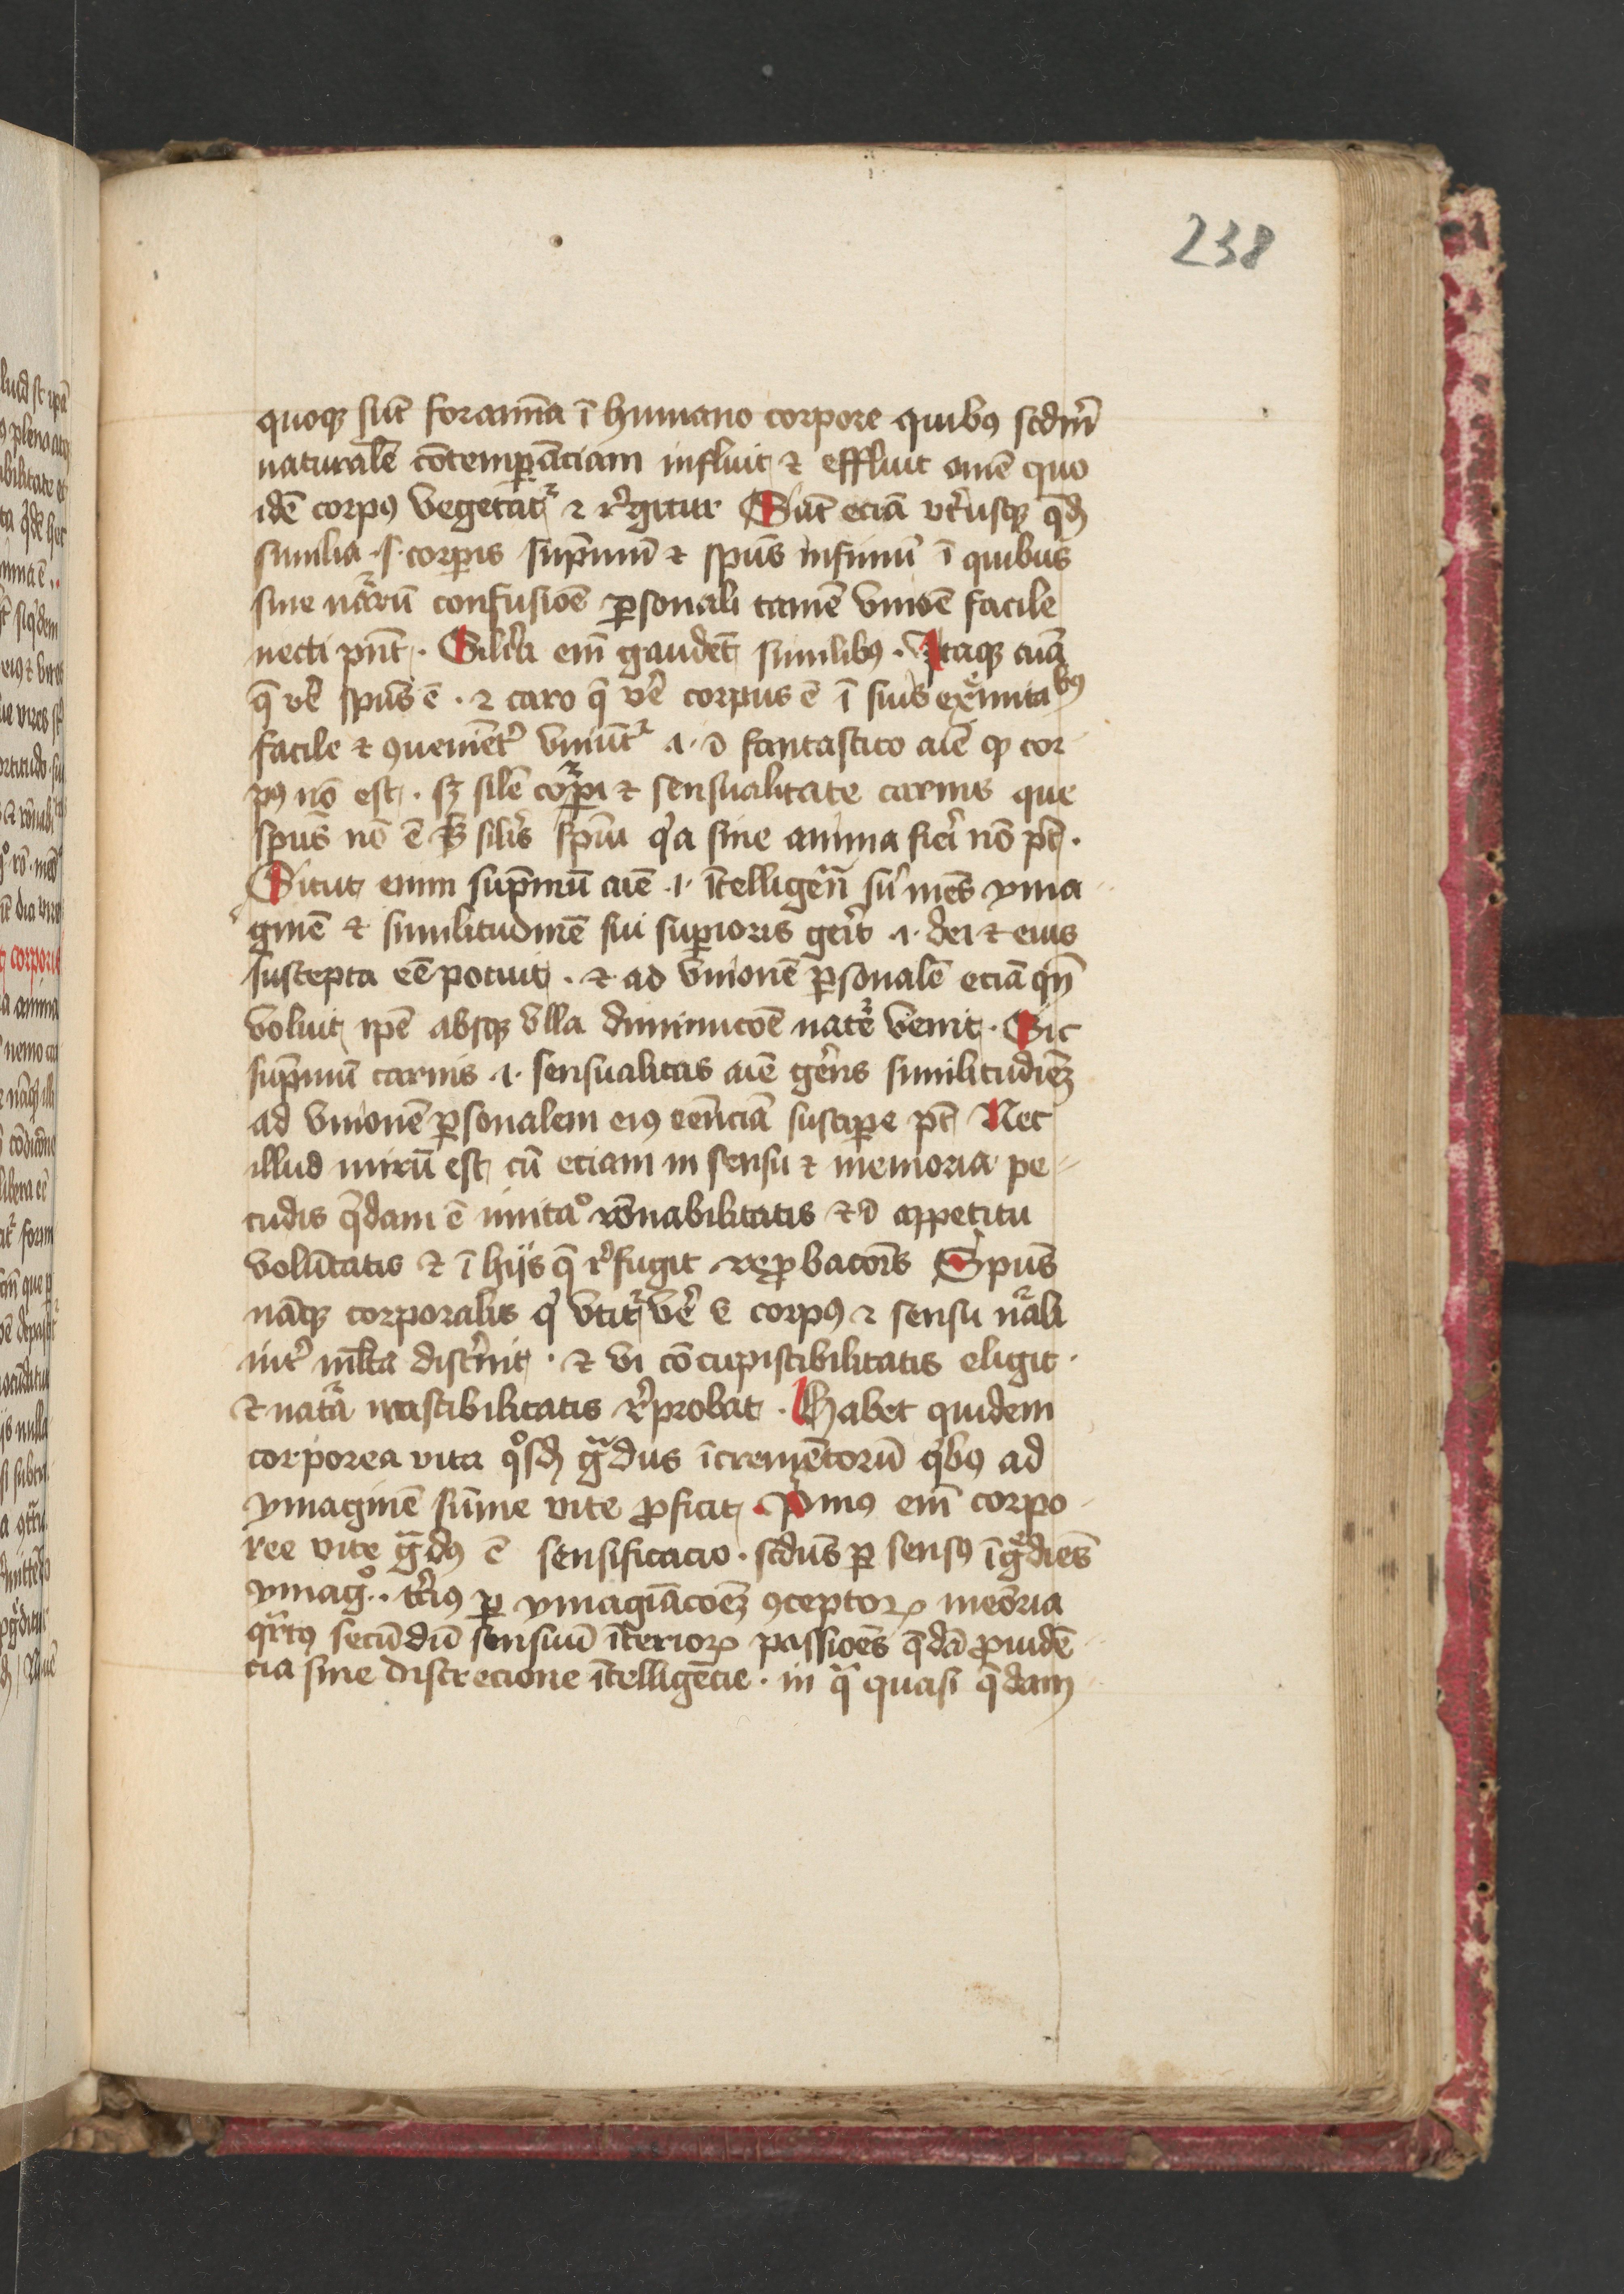 238
quoqꝫ sūt foramīa ī humano corpore quibꝰ scdm̄
naturalē cōtemꝑāciam influit ⁊ effluit om̄e quo
idē corpꝰ vegetat᷑ ⁊ rͥgitur Sūt eciā vtͥusqꝫ qͣd̄
similia .s. corꝑis supͥmū ⁊ spūs infimū ī quibus
sine nar̄ū confusiōe ꝑsonali tamē vniōe facile
necti pn̄t . Silīa em̄ gaudēt similibꝰ . Itaqꝫ aīa
q̄ vē spūs ē . ⁊ caro q̄ vē corpus ē ī suis ex̄mitabꝰ
facile ⁊ ꝯueniēt͛ vniūt᷑ .i. ī fantastico aīe qͩ cor
pꝰ nō est . sꝫ silē corꝑi ⁊ sensualitate carnis que
spūs nō ē sꝫ silis spūi qͥa sine anima fieri nō pt̄ .
Sicut enim supͥmū aīe .i. ītelligēn̄ siͮ mēs yma
ginē ⁊ similitudinē sui suꝑioris gen̄is .i. dei ⁊ eius
suscepta eē potuit . ⁊ ad vnionē ꝑsonalē eciā qn̄
voluit ipē absqꝫ vlla diminucōe nate᷑ venit . Sic
supͥmū carnis .i. sensualitas aīe gerēs similitudīeꝫ
ad vnionē ꝑsonalem eiꝰ eēnciā susciꝑe pt̄ Nec
illud mirū est cū eciam in sensu ⁊ memoria pe
cudis q̄dam ē imitaͦ rōnabilitatis ⁊ ī appetitu
volūtatis ⁊ ī hijs q̄ rͤfugit reꝓbacōis Spūs
nāqꝫ corporalis qͥ vtit᷑ vē ē corpꝰ ⁊ sensu nāli
int͛ mlta discͥnit . ⁊ vi cōcupiscibilitatis eligit .
⁊ nata᷑ irascibilitatis rͤprobat . Habet quidem
corporea vita qͦsd̄ gͣdus īcremētorū qͥbꝰ ad
ymaginē sūme vite ꝓficit . Pͥmꝰ em̄ corpo
ree vite gͣdꝰ ē sensificacio . scdūs ꝑ sensꝰ īgͤdiēs
ymagͦ . tͥciꝰ ꝑ ymagiācōeꝫ ꝯceptoꝝ meōria
qͣrtꝰ secūdū sensuū īterioꝝ passiōes q̄dā ꝓuidē
cia sine discrecione ītelligēcie . in qͣ quasi q̄dam